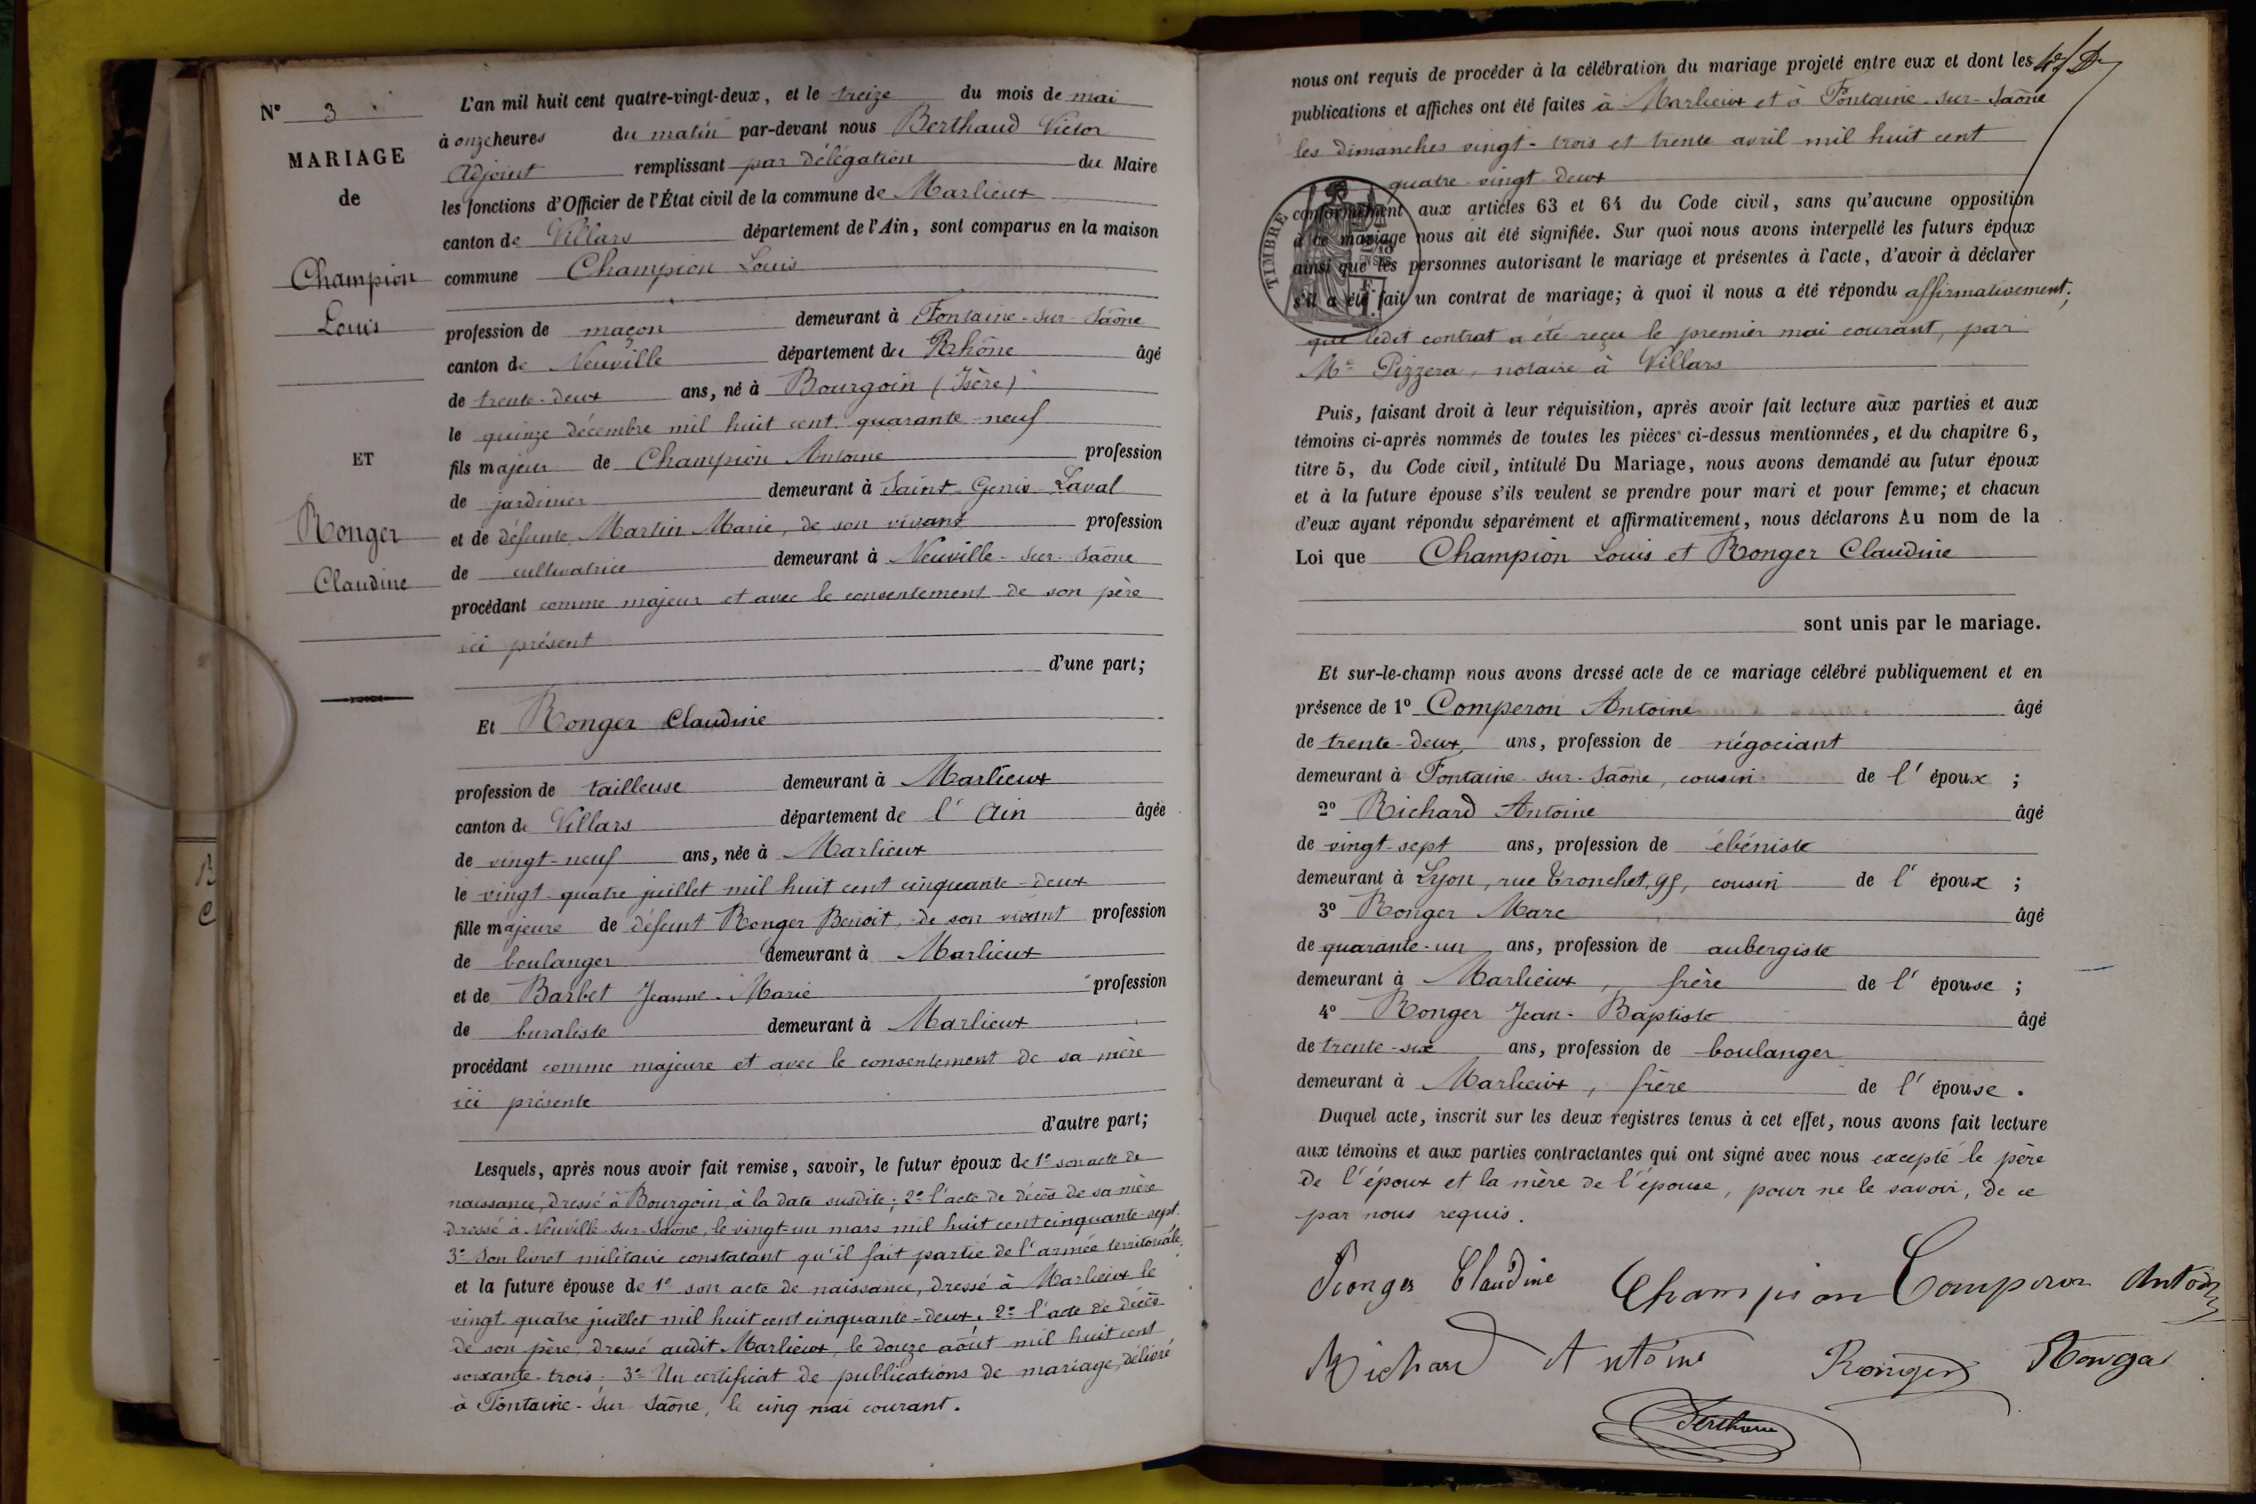 N° 3
MARIAGE
de
Champion
Louis
ET
Ronger
Claudine
L'an mil huit cent quatre-vingt-deux, et le treize du mois de mai
à onze heures du matin par-devant nous Berthaud Victor
Adjoint remplissant par délégation du Maire
les fonctions d'Officier de l'État civil de la commune de Marlieux
canton de Villars département de l'Ain, sont comparus en la maison
commune Champion Louis
profession de maçon demeurant à Fontaine-sur-Saône
canton de Neuville département du Rhône âgé
de trente-deux ans, né à Bourgoin (Isère)
le quinze décembre mil huit cent quarante-neuf
fils majeur de Champion Antoine profession
de jardinier demeurant à Saint-Genis-Laval
et de défunte Martin Marie, de son vivant profession
de cultivatrice demeurant à Neuville-sur-Saône
procédant comme majeur et avec le consentement de son père
ici présent
d'une part;
Et Ronger Claudine
profession de tailleuse demeurant à Marlieux
canton de Villars département de l'Ain âgée
de vingt-neuf ans, née à Marlieux
le vingt-quatre juillet mil huit cent cinquante-deux
fille majeure de défunt Ronger Benoit, de son vivant profession
de boulanger demeurant à Marlieux
et de Barbet Jeanne-Marie profession
de buraliste demeurant à Marlieux
procédant comme majeure et avec le consentement de sa mère
ici présente
d'autre part;
Lesquels, après nous avoir fait remise, savoir, le futur époux de 1° son acte de
naissance, dressé à Bourgoin, à la date susdite; 2° l'acte de décès de sa mère
dressé à Neuville-sur-Saône, le vingt-un mars mil huit cent cinquante-sept.
3° Son livret militaire constatant qu'il fait partie de l'armée territoriale.
et la future épouse de 1° son acte de naissance, dressé à Marlieux le
vingt-quatre juillet mil huit cent cinquante-deux. 2° l'acte de décès
de son père, dressé audit Marlieux, le douze août mil huit cent
soixante-trois. 3° Un certificat de publications de mariage, délivré
à Fontaine-sur-Saône, le cinq mai courant.
nous ont requis de procéder à la célébration du mariage projeté entre eux et dont les
publications et affiches ont été faites à Marlieux et à Fontaine-sur-Saône
les dimanches vingt-trois et trente avril mil huit cent
quatre-vingt-deux
conformément aux articles 63 et 64 du Code civil, sans qu'aucune opposition
à ce mariage nous ait été signifiée. Sur quoi nous avons interpellé les futurs époux
ainsi que les personnes autorisant le mariage et présentes à l'acte, d'avoir à déclarer
s'il a été fait un contrat de mariage; à quoi il nous a été répondu affirmativement;
que ledit contrat a été reçu le premier mai courant, par
Me Pizzera, notaire à Villars
TIMBRE
Puis, faisant droit à leur réquisition, après avoir fait lecture aux parties et aux
témoins ci-après nommés de toutes les pièces ci-dessus mentionnées, et du chapitre 6,
titre 5, du Code civil, intitulé Du Mariage, nous avons demandé au futur époux
et à la future épouse s'ils veulent se prendre pour mari et pour femme; et chacun
d'eux ayant répondu séparément et affirmativement, nous déclarons Au nom de la
Loi que Champion Louis et Ronger Claudine
sont unis par le mariage.
Et sur-le-champ nous avons dressé acte de ce mariage célébré publiquement et en
présence de 1° Comperon Antoine âgé
de trente-deux ans, profession de négociant
demeurant à Fontaine-sur-Saône, cousin de l'époux;
2° Richard Antoine âgé
de vingt-sept ans, profession de ébéniste
demeurant à Lyon, rue Tronchet, 95, cousin de l'époux;
3° Ronger Marc âgé
de quarante-un ans, profession de aubergiste
demeurant à Marlieux, frère de l'épouse;
4° Ronger Jean-Baptiste âgé
de trente-six ans, profession de boulanger
demeurant à Marlieux, frère de l'épouse.
Duquel acte, inscrit sur les deux registres tenus à cet effet, nous avons fait lecture
aux témoins et aux parties contractantes qui ont signé avec nous excepté le père
de l'époux et la mère de l'épouse, pour ne le savoir, de ce
par nous requis.
Ronger Claudine Champion Comperon Antoine
Richard Antoine Ronger Ronger
Berthaud